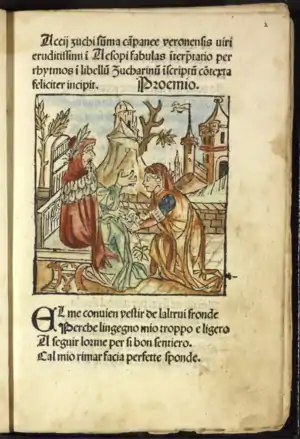 Accij zuchi sũma cãpanee veronensis viri
eruditissimi ĩ Aesopi fabulas ĩterp̃tatio per
rhytmos ĩ libellũ Zucharinũ ĩscriptũ cõtexta
feliciter incipit. Proemio.
EL me conuien vestir de laltrui fronde
Perche lingegno mio troppo e ligero
A seguir lorme per si bon sentiero.
Cal mio rimar facia perfette sponde.